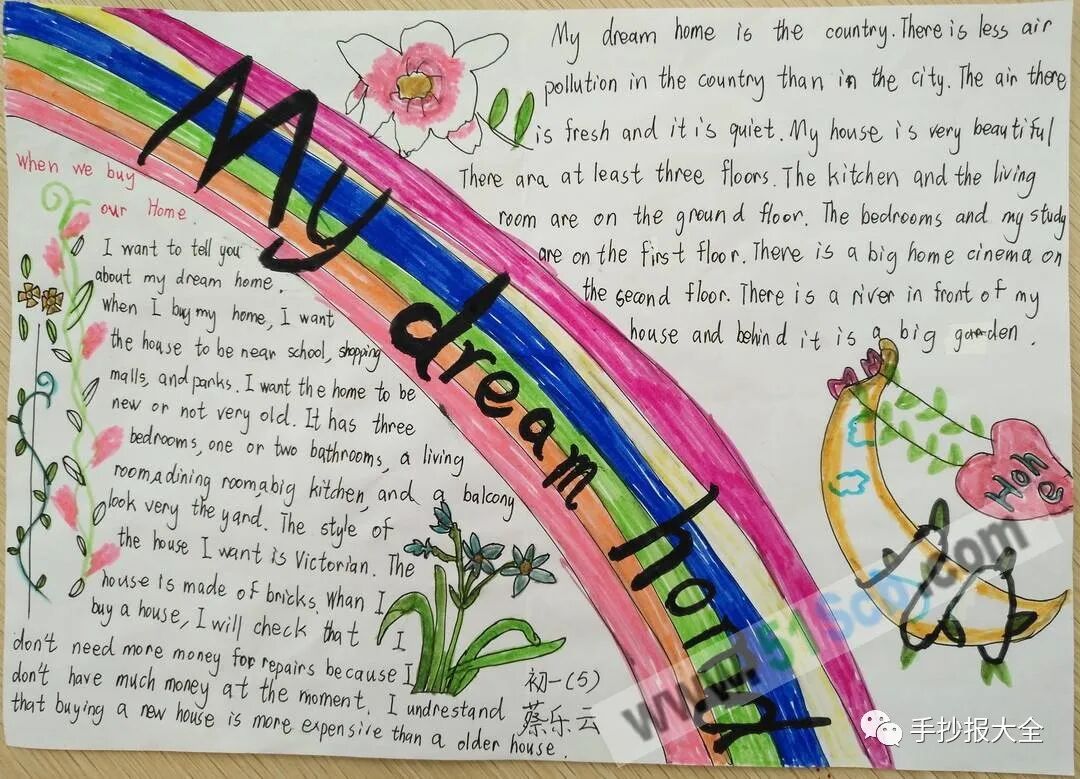 My dream home
My dream home is the country. There is less air
pollution in the country than in the city. The air there
is fresh and it is quiet. My house is very beautiful
There ara at least three floors. The kitchen and the living
room are on the ground floor. The bedrooms and my study
are on the first floor. There is a big home cinema on
the second floor. There is a river in front of my
house and behind it is a big garden.
When we buy
our Home.
I want to tell you
about my dream home.
when I buy my home, I want
the house to be near school, shopping
malls, and parks. I want the home to be
new or not very old. It has three
bedrooms, one or two bathrooms, a living
room, a dining room, a big kitchen, and a balcony
look very the yard. The style of
the house I want is Victorian. The
house is made of bricks. Whan I
buy a house, I will check that I
don't need more money for repairs because I
don't have much money at the moment. I undrestand
that buying a new house is more expensire than a older house.
初一(5)
蔡乐云
手抄报大全